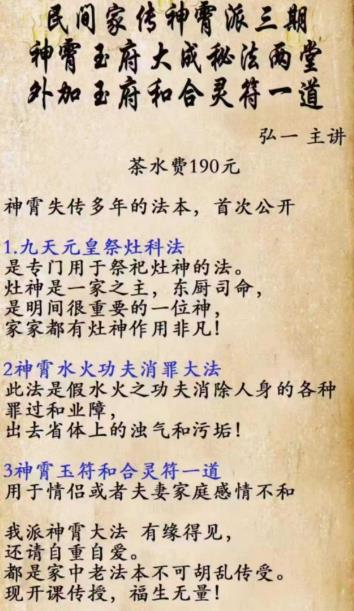 民间家传神霄派三期
神霄玉府大成秘法两堂
外加玉府和合灵符一道
弘一 主讲
茶水费190元
神霄失传多年的法本，首次公开
1.九天元皇祭灶科法
是专门用于祭祀灶神的法。
灶神是一家之主，东厨司命，
是明间很重要的一位神，
家家都有灶神作用非凡！
2神霄水火功夫消罪大法
此法是假水火之功夫消除人身的各种
罪过和业障，
出去省体上的浊气和污垢！
3神霄玉符和合灵符一道
用于情侣或者夫妻家庭感情不和
我派神霄大法 有缘得见，
还请自重自爱。
都是家中老法本不可胡乱传受。
现开课传授，福生无量！